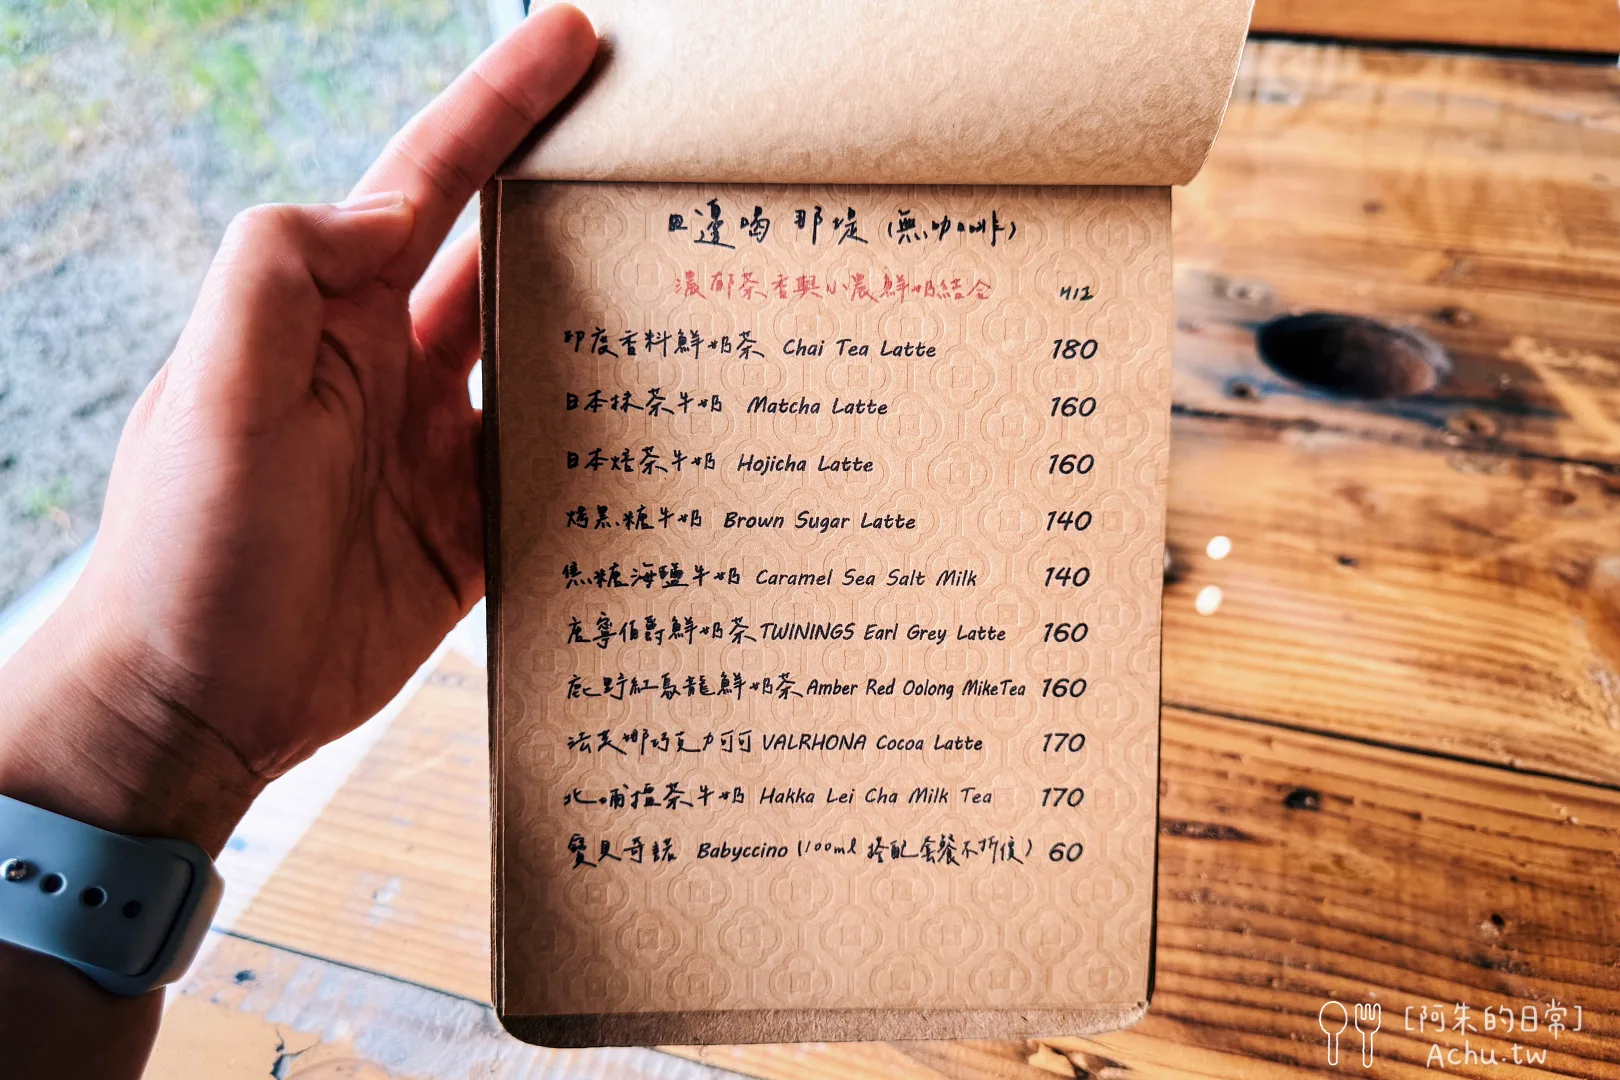 日邊喝 那堤 (無咖啡)
濃郁茶香與小農鮮奶結合 H/I
印度香料鮮奶茶 Chai Tea Latte 180
日本抹茶牛奶 Matcha Latte 160
日本焙茶牛奶 Hojicha Latte 160
烤黑糖牛奶 Brown Sugar Latte 140
焦糖海鹽牛奶 Caramel Sea Salt Milk 140
唐寧伯爵鮮奶茶 TWININGS Earl Grey Latte 160
鹿野紅烏龍鮮奶茶 Amber Red Oolong MikeTea 160
法芙娜巧克力可可 VALRHONA Cocoa Latte 170
北埔擂茶牛奶 Hakka Lei Cha Milk Tea 170
寶貝奇諾 Babyccino (100ml 搭配套餐不折價) 60
[阿朱的日常]
Achu.tw